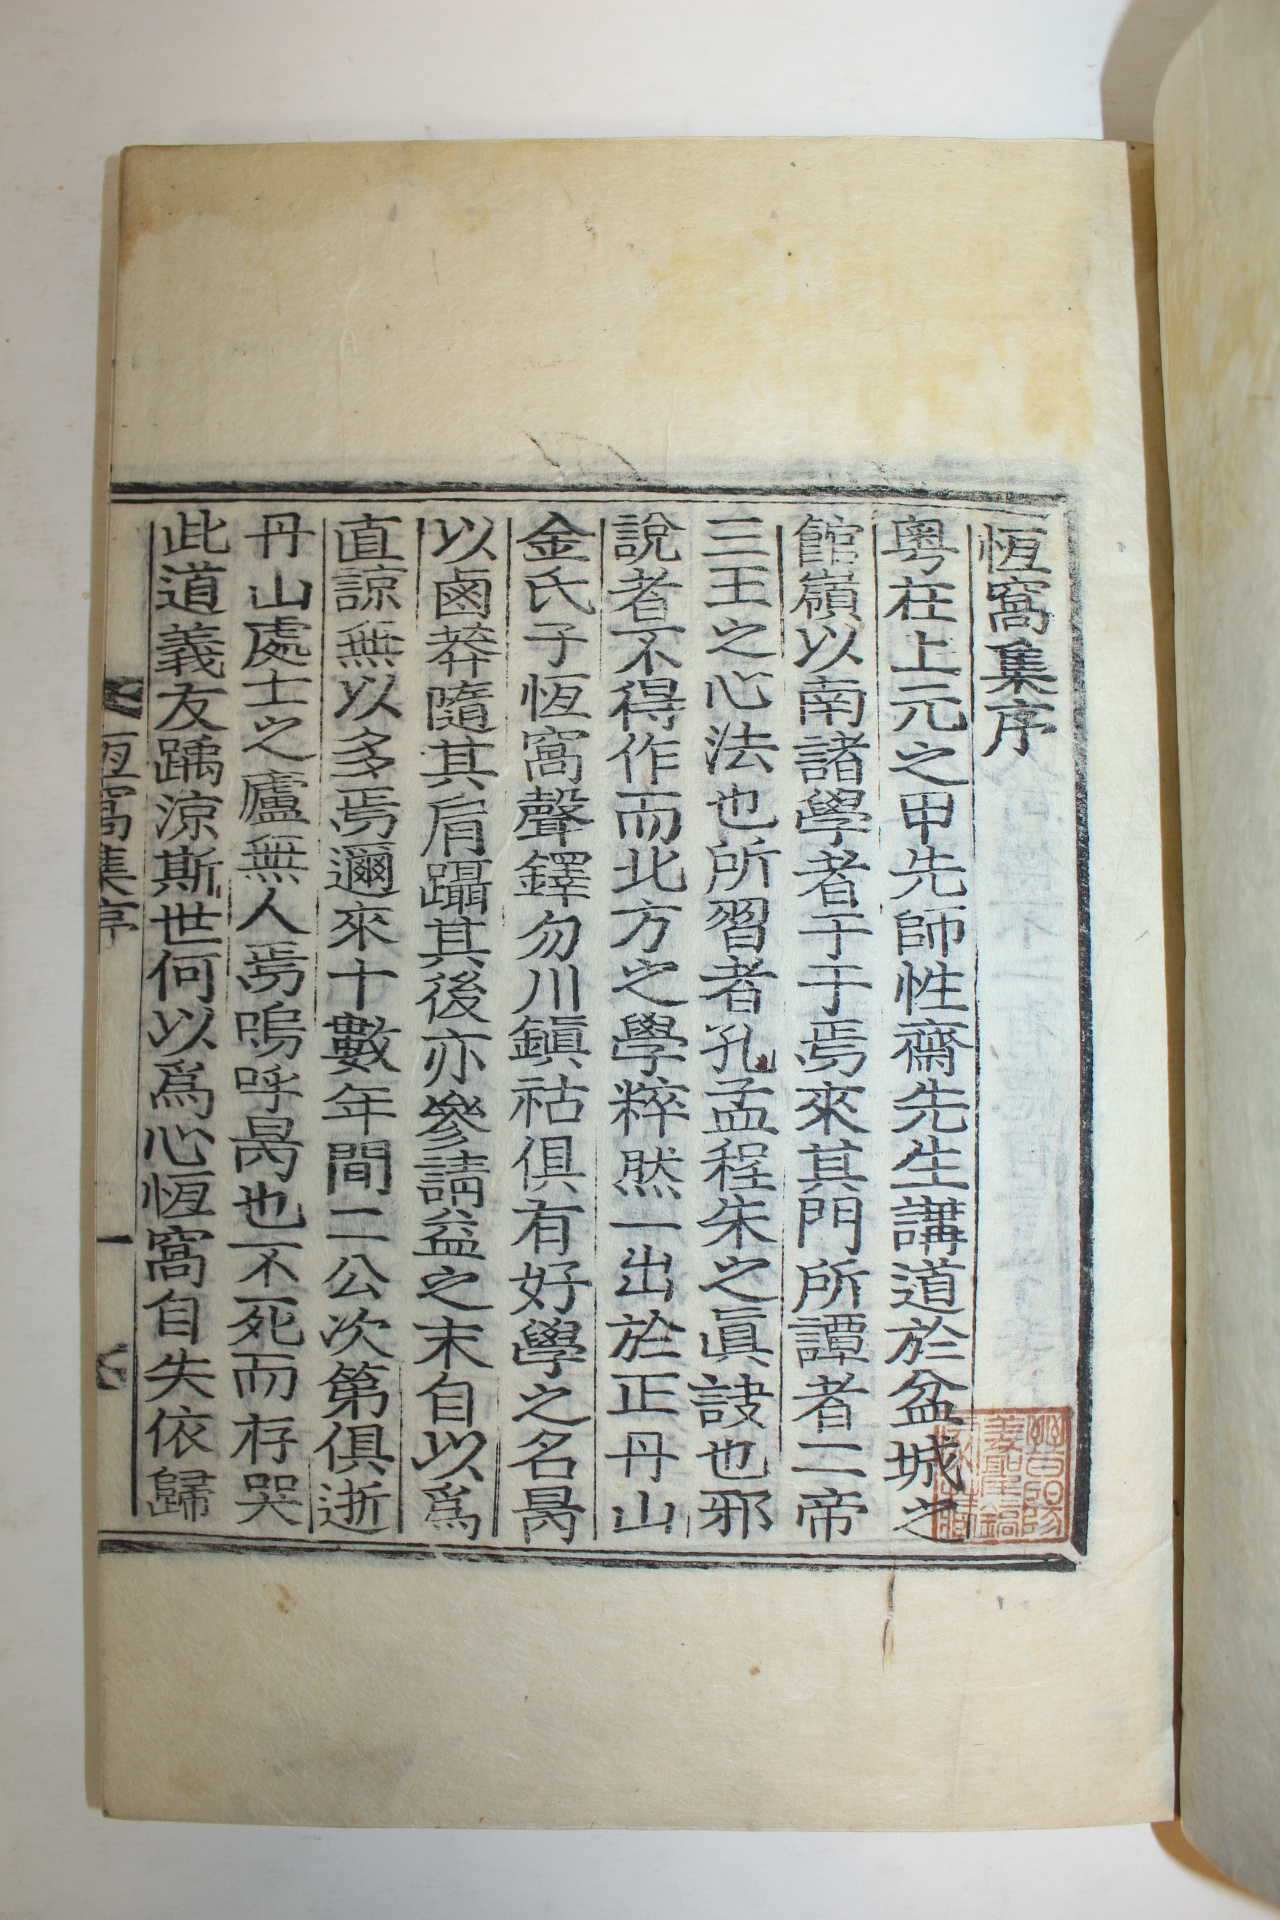 恆窩集序
粤在上元之甲先師性齋先生講道於盆城之
館嶺以南諸學者于于焉來其門所譚者二帝
三王之心法也所習者孔孟程朱之眞訣也邪
說者不得作而北方之學粹然一出於正丹山
金氏子恆窩聲鐸勿川鎭祜俱有好學之名曷
以鹵莽隨其肩躡其後亦參請益之末自以爲
直諒無以多焉邇來十數年間二公次第俱逝
丹山處士之廬無人焉嗚呼曷也不死而存哭
此道義友踽涼斯世何以爲心恆窩自失依歸
恆窩集序
一